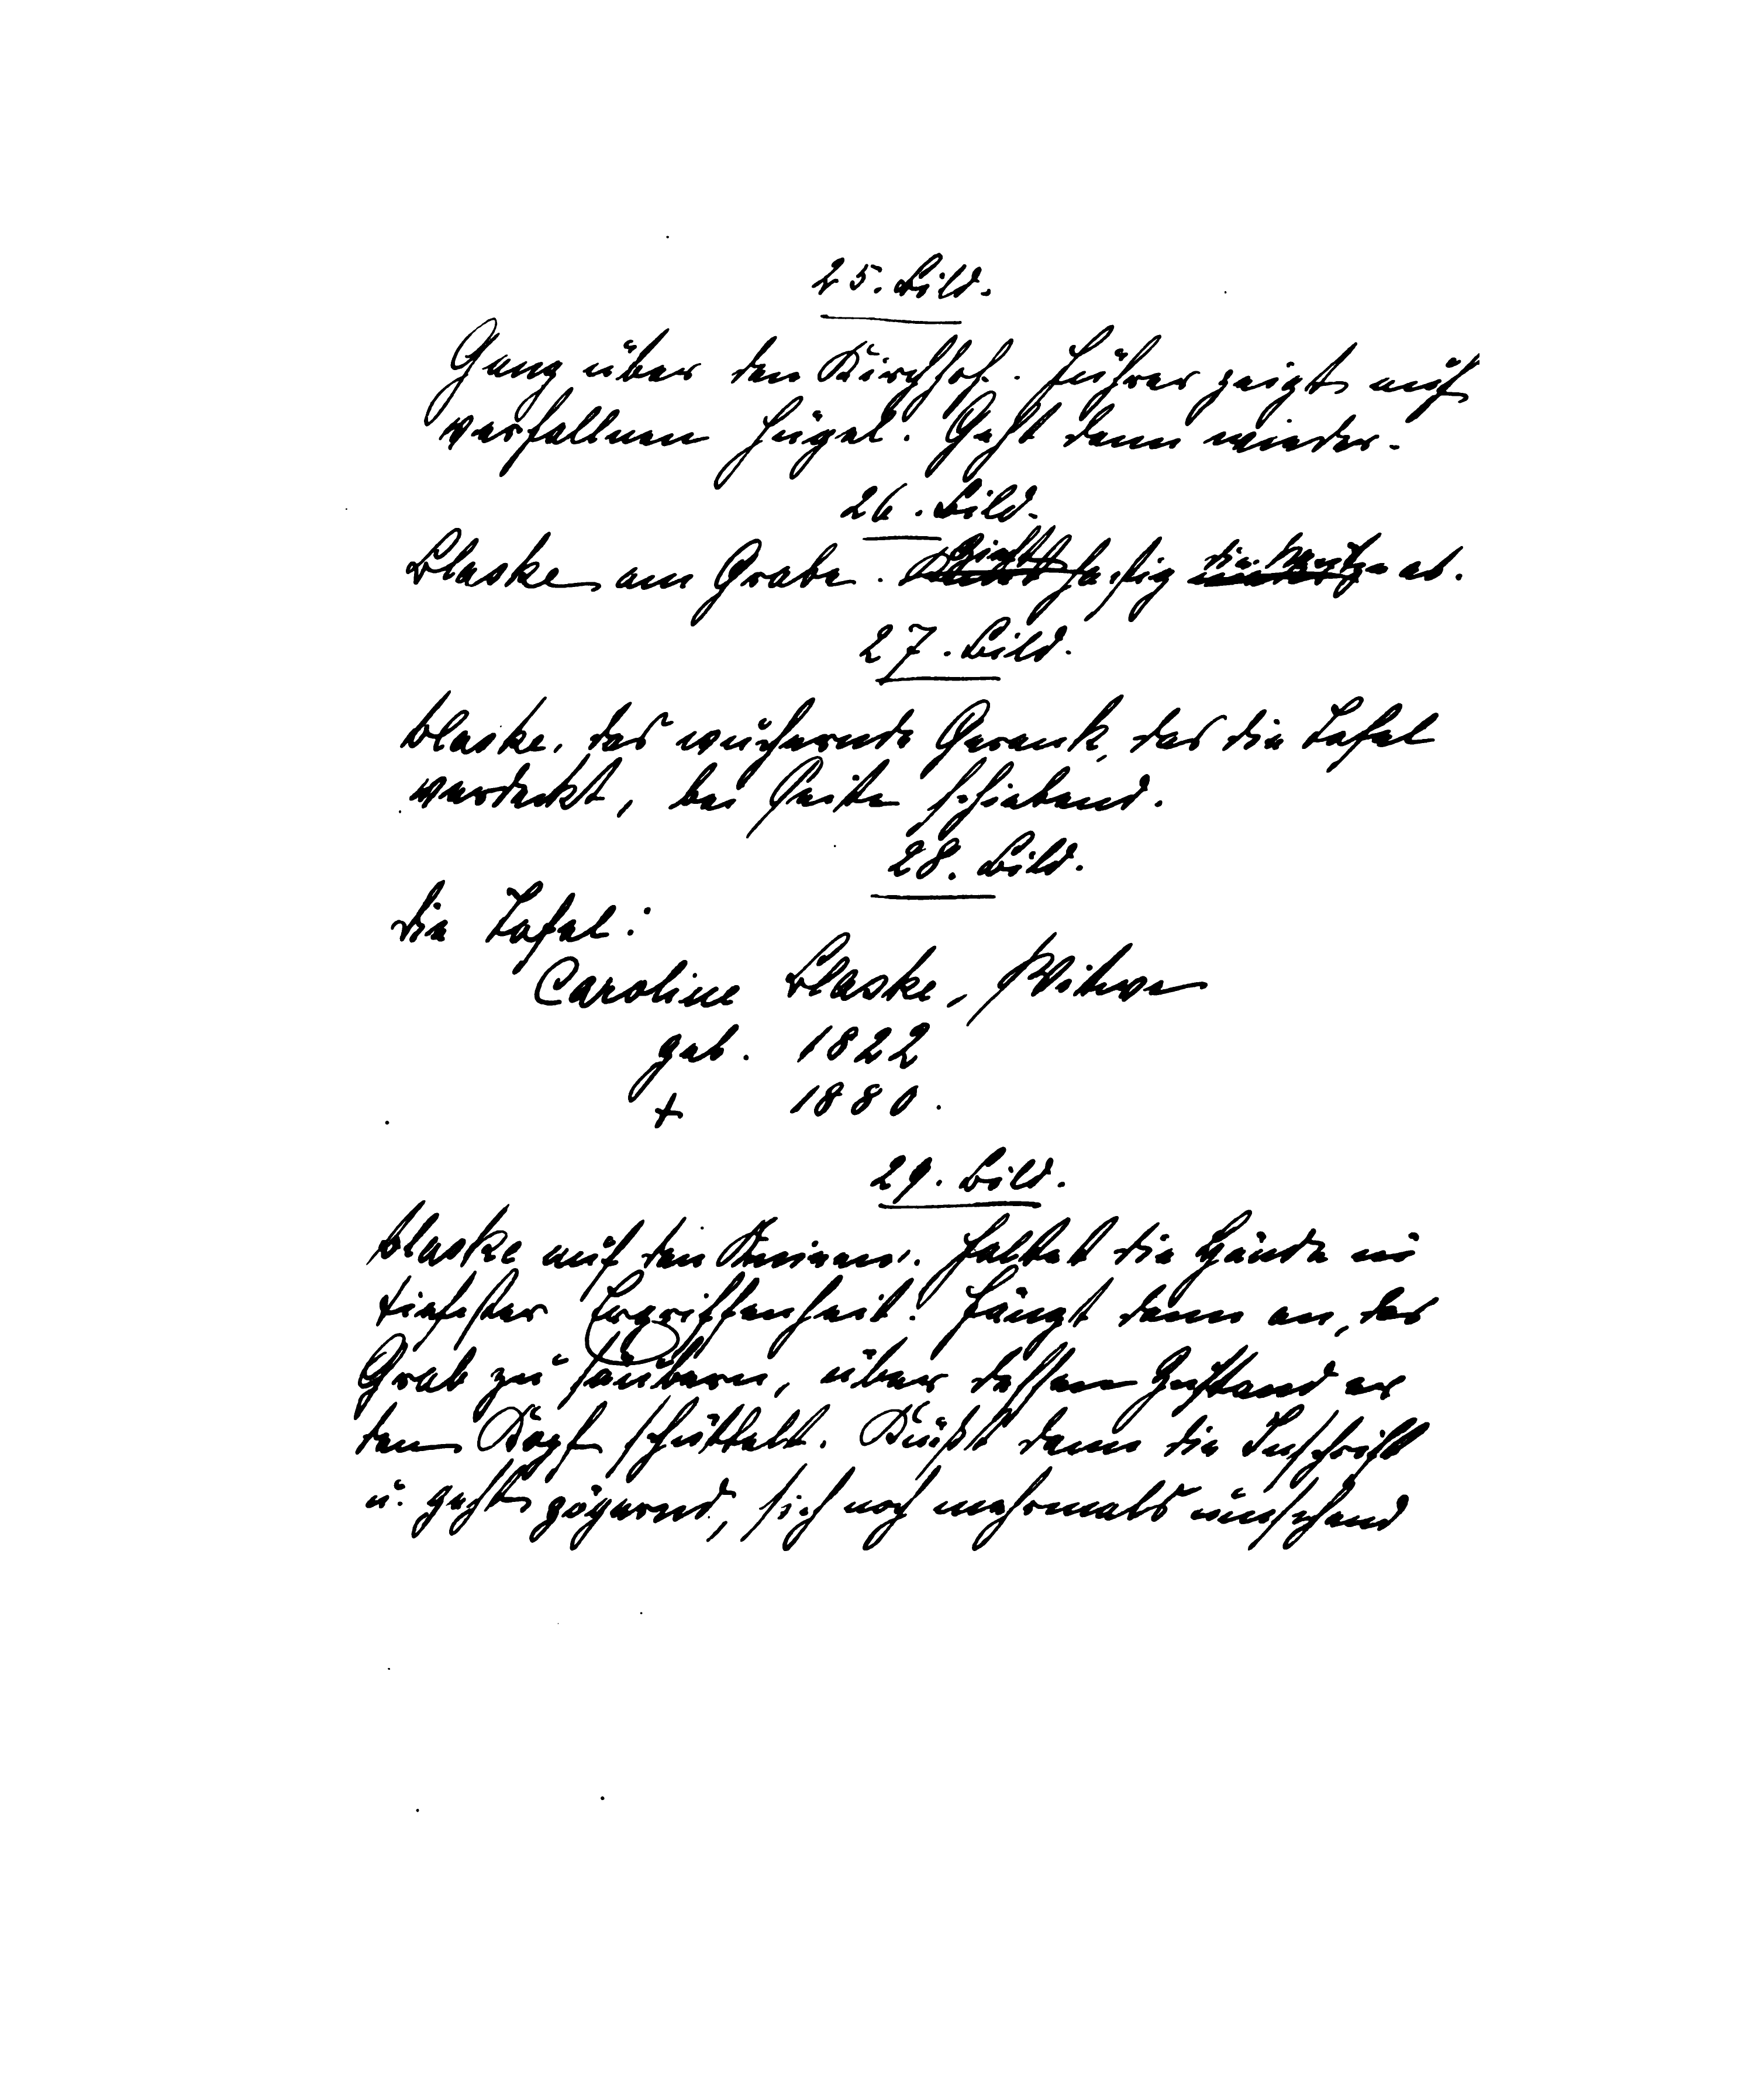 25. Bild.
Gang über den Kirchhof. Führer zeigt auf
verfallnen Hügel. Geht dann wieder.
26. Bild.
Blaske am Grabe. zieht hastig die Mütze ab.
27. Bild.
Blaske, das wuchernde Gerank, das die Tafel
verdeckt, bei Seite schiebend.
28. Bild.
Die Tafel:
Caroline Blaske, Witwe
geb. 1822
+ 1880.
29. Bild.
Blaske auf den Knieen. Faltet die Hände in
tiefster Ergriffenheit. Fängt dann an, das
Grab zu säubern, über dessen Zustand er
den Kopf schüttelt. Küßt dann die Inschrift
u. geht zögernd, sich noch mehrmals umsehend